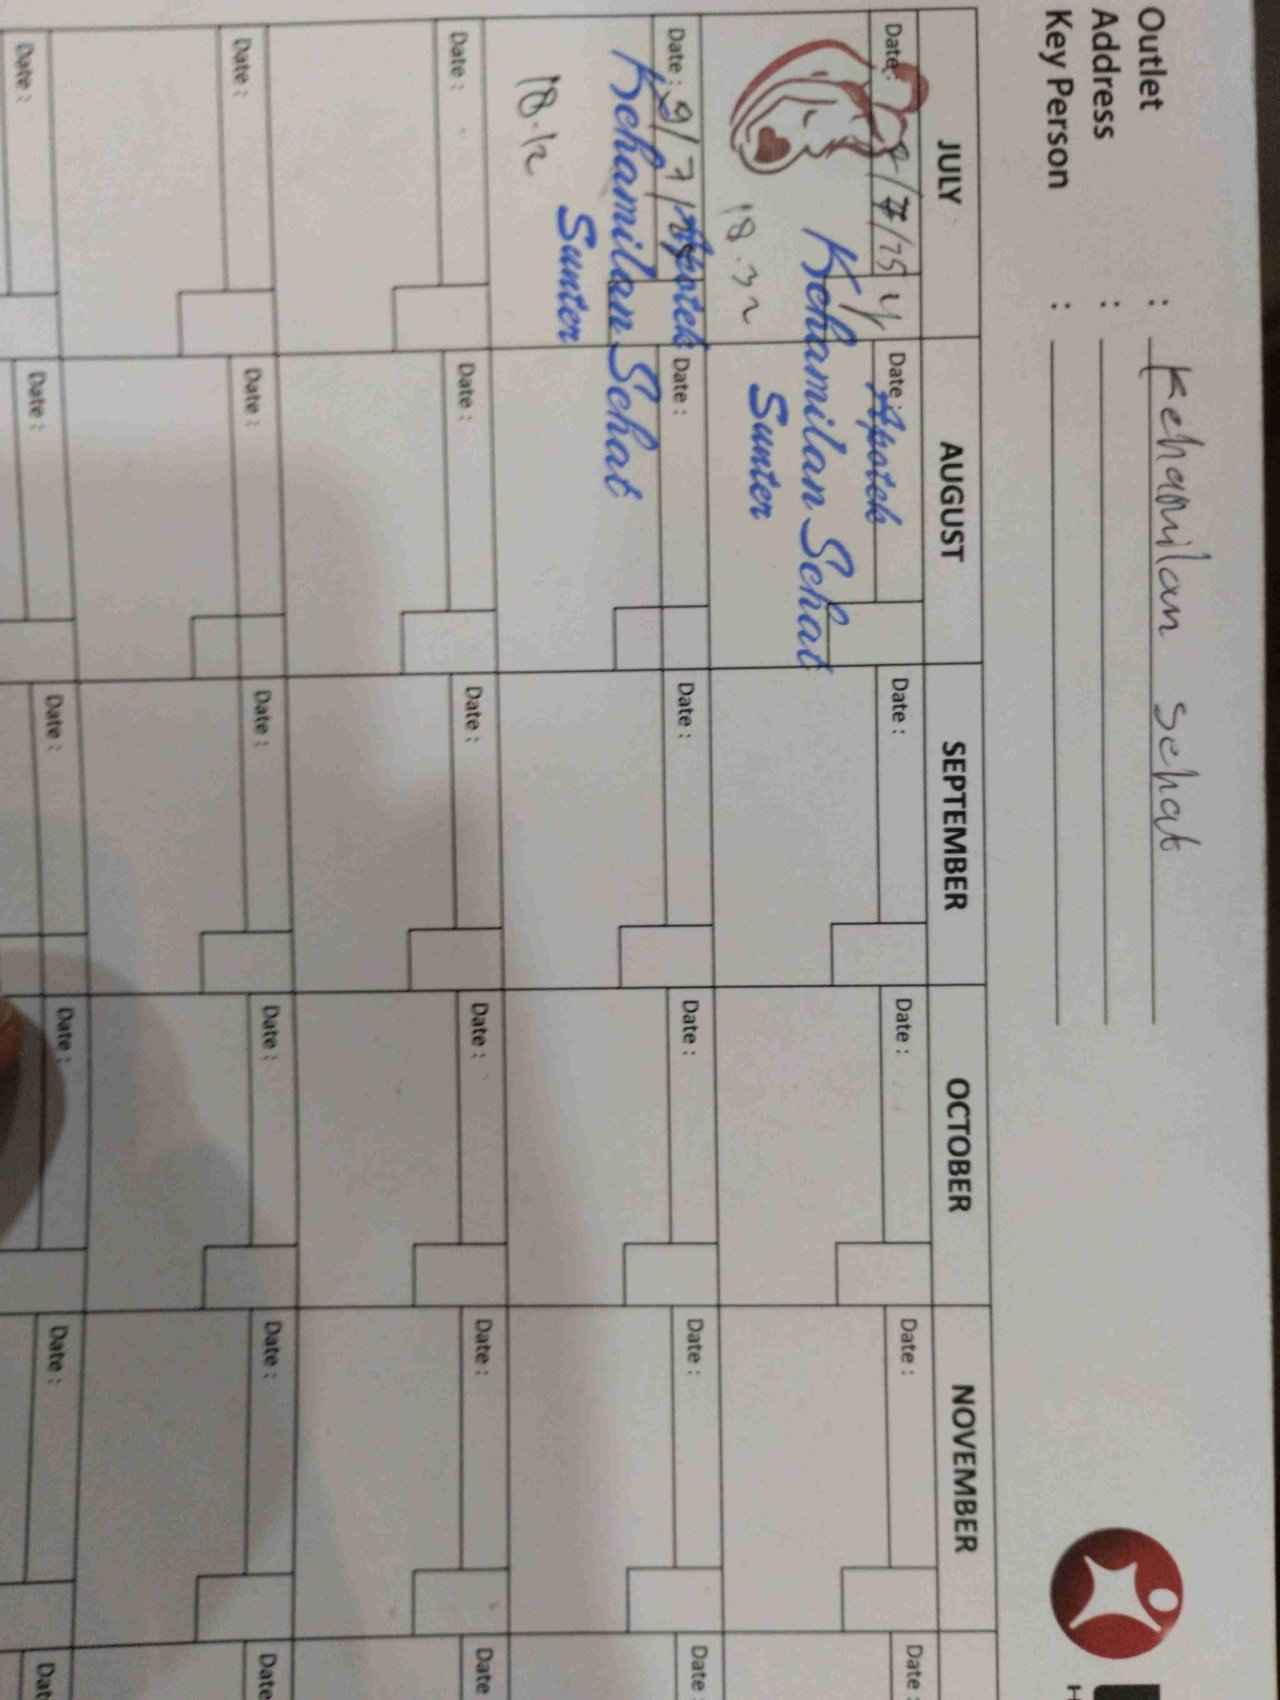 Outlet : Kehamilan Sehat
Address :
Key Person :
JULY AUGUST SEPTEMBER OCTOBER NOVEMBER
Date : 8/7/25 Date : Date : Date : Date : Date :
Apotek
Kehamilan Sehat
Sunter
18.32
Date : 9/7/25 Date : Date : Date : Date : Date :
Apotek
Kehamilan Sehat
Sunter
18.12
Date : Date : Date : Date : Date : Date
Date : Date : Date : Date : Date : Date
Date : Date : Date : Date : Date : Dat